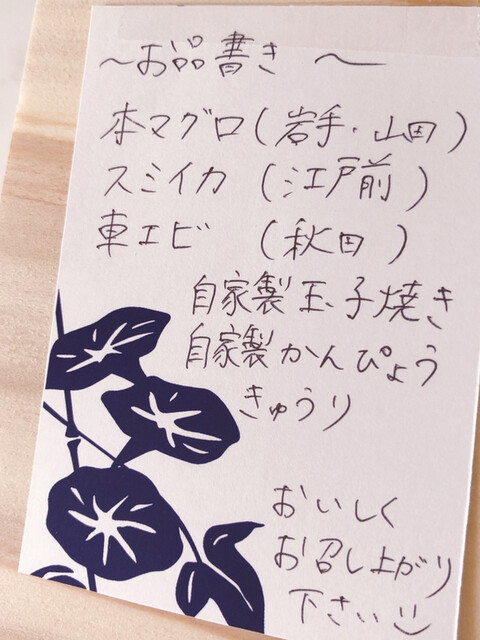 ～お品書き ～
本マグロ(岩手・山田)
スミイカ (江戸前)
車エビ (秋田)
自家製玉子焼き
自家製かんぴょう
きゅうり
おいしく
お召し上がり
下さい